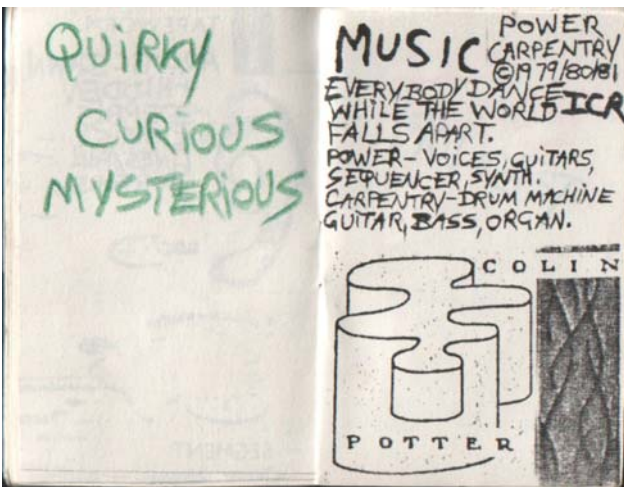 QUiRKY
CURiOUS
MYSTERiOUS
MUSIC
POWER
CARPENTRY
©1979/80/81
EVERYBODY DANCE
WHILE THE WORLD ICR
FALLS APART.
POWER- VOICES, GUITARS,
SEQUENCER, SYNTH.
CARPENTRY-DRUM MACHINE
GUITAR, BASS, ORGAN.
COLIN
POTTER